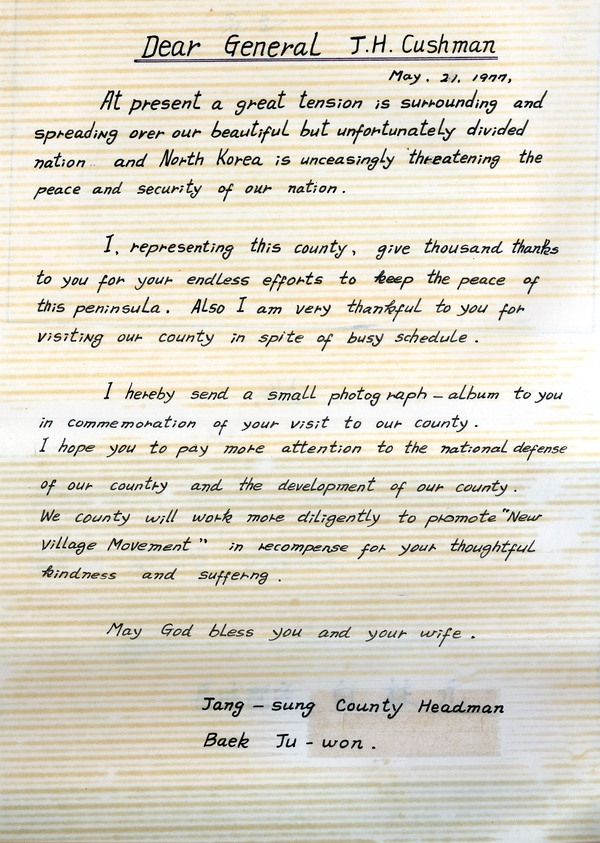 Dear General J.H. Cushman
May. 21. 1977,
At present a great tension is surrounding and
spreading over our beautiful but unfortunately divided
nation and North Korea is unceasingly threatening the
peace and security of our nation.
I, representing this county, give thousand thanks
to you for your endless efforts to keep the peace of
this peninsula. Also I am very thankful to you for
visiting our county in spite of busy schedule.
I hereby send a small photograph-album to you
in commemoration of your visit to our county.
I hope you to pay more attention to the national defense
of our country and the development of our county.
We county will work more diligently to promote "New
Village Movement" in recompense for your thoughtful
kindness and sufferng.
May God bless you and your wife.
Jang-sung County Headman
Baek Ju-won.